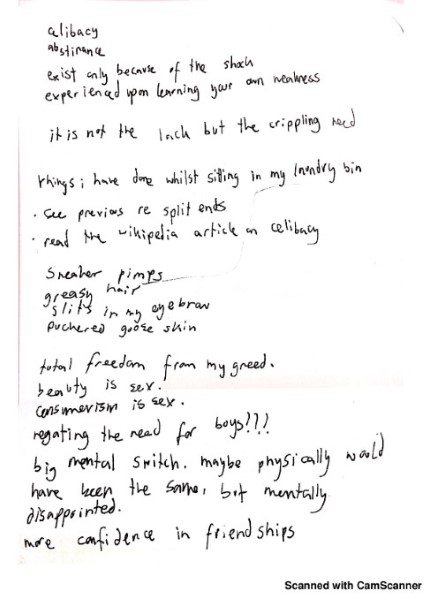 celibacy
abstinance
exist only because of the shock
experienced upon learning your own weakness
it is not the lack but the crippling need
things i have done whilst sitting in my laundry bin
· see previous re split ends
· read the wikipedia article on celibacy
Sneaker pimps
greasy hair
slits in my eyebrow
puckered goose skin
total freedom from my greed.
beauty is sex.
consumerism is sex.
negating the need for boys???
big mental switch. maybe physically would
have been the same, but mentally
disappointed.
more confidence in friendships
Scanned with CamScanner